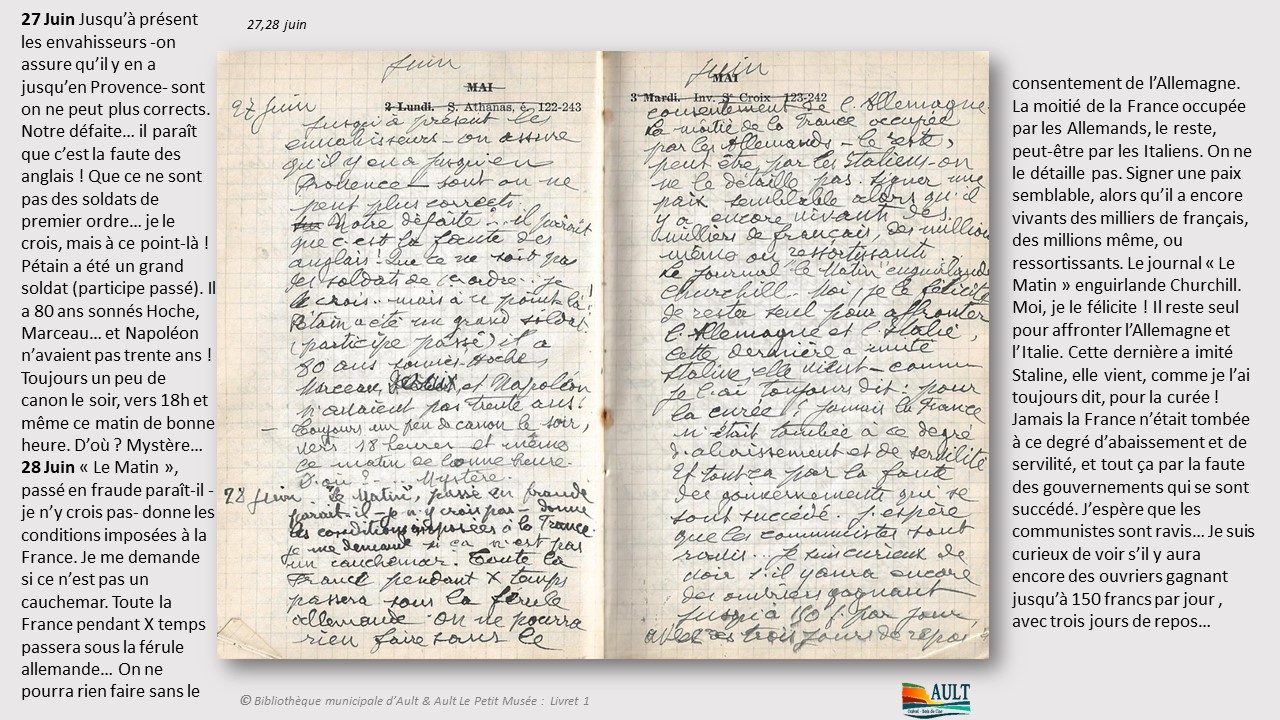 27 Juin Jusqu’à présent
les envahisseurs -on
assure qu’il y en a
jusqu’en Provence- sont
on ne peut plus corrects.
Notre défaite… il paraît
que c’est la faute des
anglais ! Que ce ne sont
pas des soldats de
premier ordre… je le
crois, mais à ce point-là !
Pétain a été un grand
soldat (participe passé). Il
a 80 ans sonnés Hoche,
Marceau… et Napoléon
n’avaient pas trente ans !
Toujours un peu de
canon le soir, vers 18h et
même ce matin de bonne
heure. D’où ? Mystère…
28 Juin « Le Matin »,
passé en fraude paraît-il -
je n’y crois pas- donne les
conditions imposées à la
France. Je me demande
si ce n’est pas un
cauchemar. Toute la
France pendant X temps
passera sous la férule
allemande… On ne
pourra rien faire sans le
27,28 juin
juin
MAI
2 Lundi. S. Athanas, é. 122-243
27 juin
Jusqu'à présent les
envahisseurs - on assure
qu'il y en a jusqu'en
Provence - sont on ne
peut plus corrects.
Notre défaite : il paraît
que c'est la faute des
anglais ! Que ce ne soit pas
des soldats de 1er ordre.. je
le crois.. mais à ce point là !
Pétain a été un grand soldat
(participe passé) il a
80 ans sonnés, Hoche
Marceau, et Napoléon
n'avaient pas trente ans !
- Toujours un peu de canon le soir,
vers 18 heures et même
ce matin de bonne heure.
D'où ? Mystère.
28 juin "Le Matin", passé en fraude
paraît-il - je n'y crois pas - donne
les conditions imposées à la France.
je me demande si ça n'est pas
un cauchemar. Toute la
France pendant X temps
passera sous la férule
allemande. On ne pourra
rien faire sans le
juin
MAI
3 Mardi. Inv. Ste Croix 123-242
consentement de l'Allemagne.
La moitié de la France occupée
par les Allemands - le reste,
peut être par les Italiens - on
ne le détaille pas. Signer une
paix semblable alors qu'il
y a encore vivants des
milliers de français, des millions
même ou ressortissants
Le journal "Le Matin" enguirlande
Churchill. Moi, je le félicite
de rester seul pour affronter
l'Allemagne et l'Italie,
cette dernière a imité
Staline, elle vient - comme
je l'ai toujours dit : pour
la curée ! jamais la France
n'était tombée à ce degré
d'abaissement et de servilité
Et tout ça par la faute
des gouvernements qui se
sont succédé. J'espère
que les communistes sont
ravis... je suis curieux de
voir s'il y aura encore
des ouvriers gagnant
jusqu'à 150f par jour
avec trois jours de repos
consentement de l’Allemagne.
La moitié de la France occupée
par les Allemands, le reste,
peut-être par les Italiens. On ne
le détaille pas. Signer une paix
semblable, alors qu’il a encore
vivants des milliers de français,
des millions même, ou
ressortissants. Le journal « Le
Matin » enguirlande Churchill.
Moi, je le félicite ! Il reste seul
pour affronter l’Allemagne et
l’Italie. Cette dernière a imité
Staline, elle vient, comme je l’ai
toujours dit, pour la curée !
Jamais la France n’était tombée
à ce degré d’abaissement et de
servilité, et tout ça par la faute
des gouvernements qui se sont
succédé. J’espère que les
communistes sont ravis… Je suis
curieux de voir s’il y aura
encore des ouvriers gagnant
jusqu’à 150 francs par jour ,
avec trois jours de repos…
© Bibliothèque municipale d’Ault & Ault Le Petit Musée : Livret 1
AULT